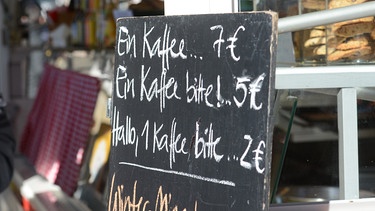 Ein Kaffee... 7€
Ein Kaffee bitte!..5€
Hallo, 1 Kaffee bitte...2€